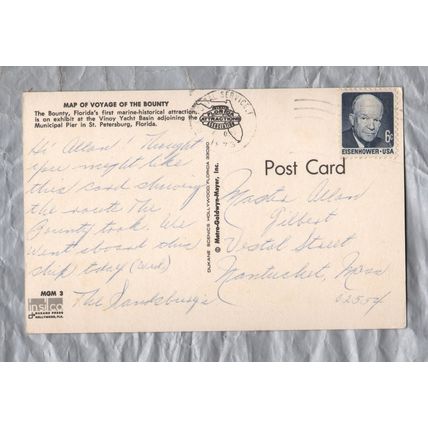 MAP OF VOYAGE OF THE BOUNTY
The Bounty, Florida's first marine-historical attraction,
is on exhibit at the Vinoy Yacht Basin adjoining the
Municipal Pier in St. Petersburg, Florida.
Hi Allan! Thought
you might like
this card showing
the route The
Bounty took. We
went aboard this
ship today (Wed)
The Sandsbury's
MGM 3
DUKANE PRESS
HOLLYWOOD, FLA.
DUKANE SCENICS HOLLYWOOD, FLORIDA 33020
© Metro-Goldwyn-Mayer, Inc.
SERVICE
ATTRACTIONS
6c
EISENHOWER·USA
Post Card
Master Allan
Gilbert
Vestal Street
Nantucket, Mass
02554